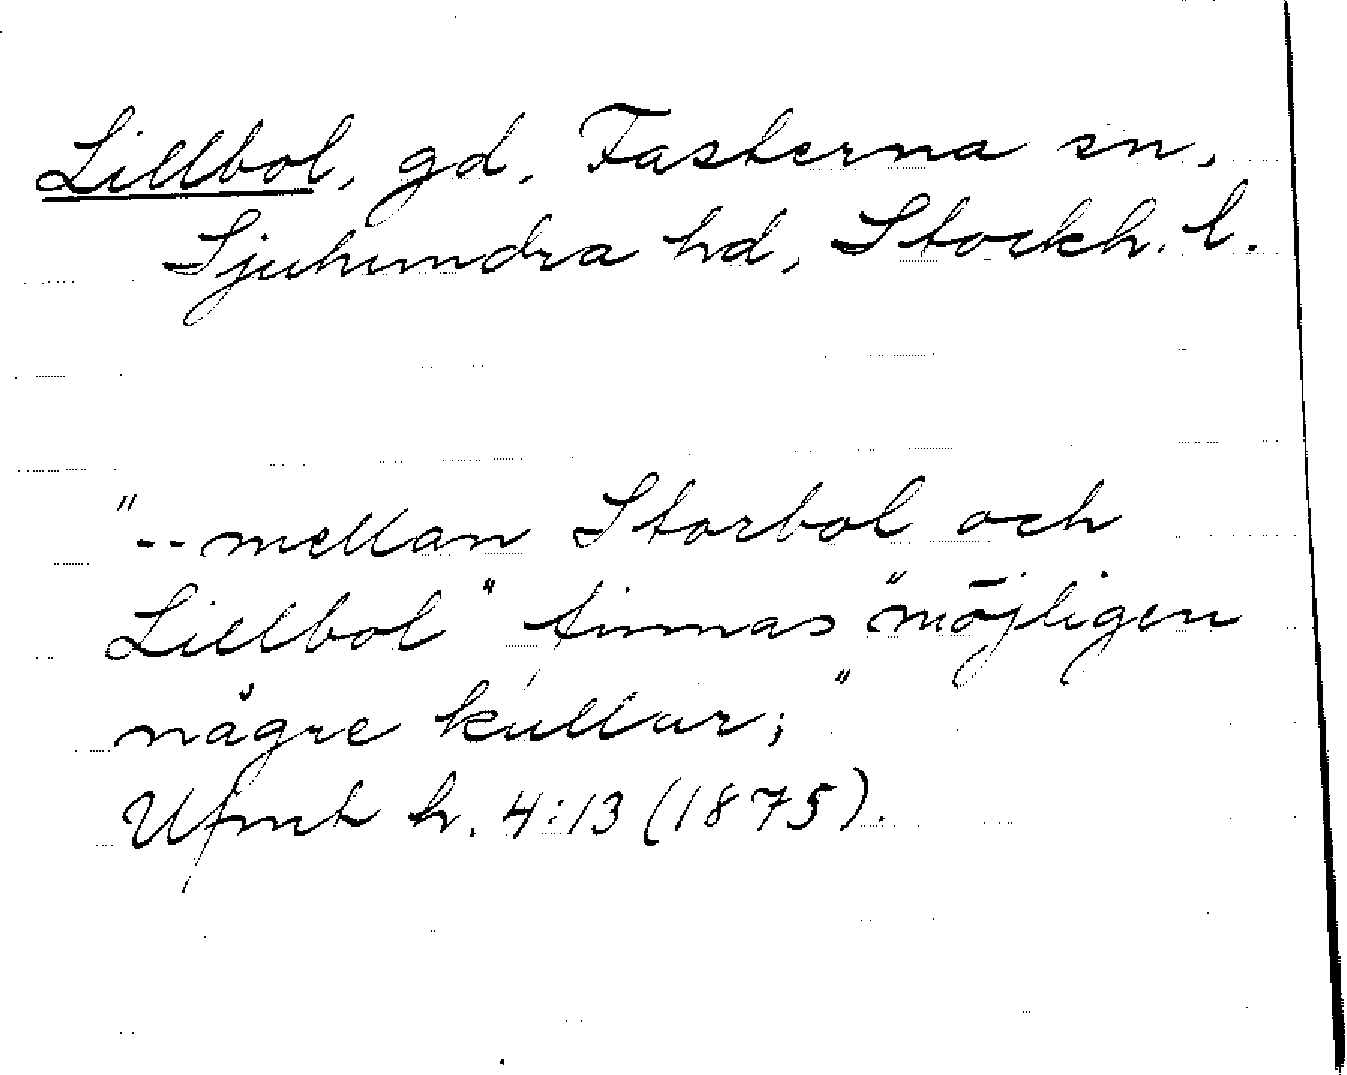 Lillbol, gd, Fasterna sn,
Sjuhundra hd, Stockh. l.
"-- mellan Storbol och
Lillbol" finnas "möjligen
någre kullar;"
Ufmt h. 4:13 (1875).